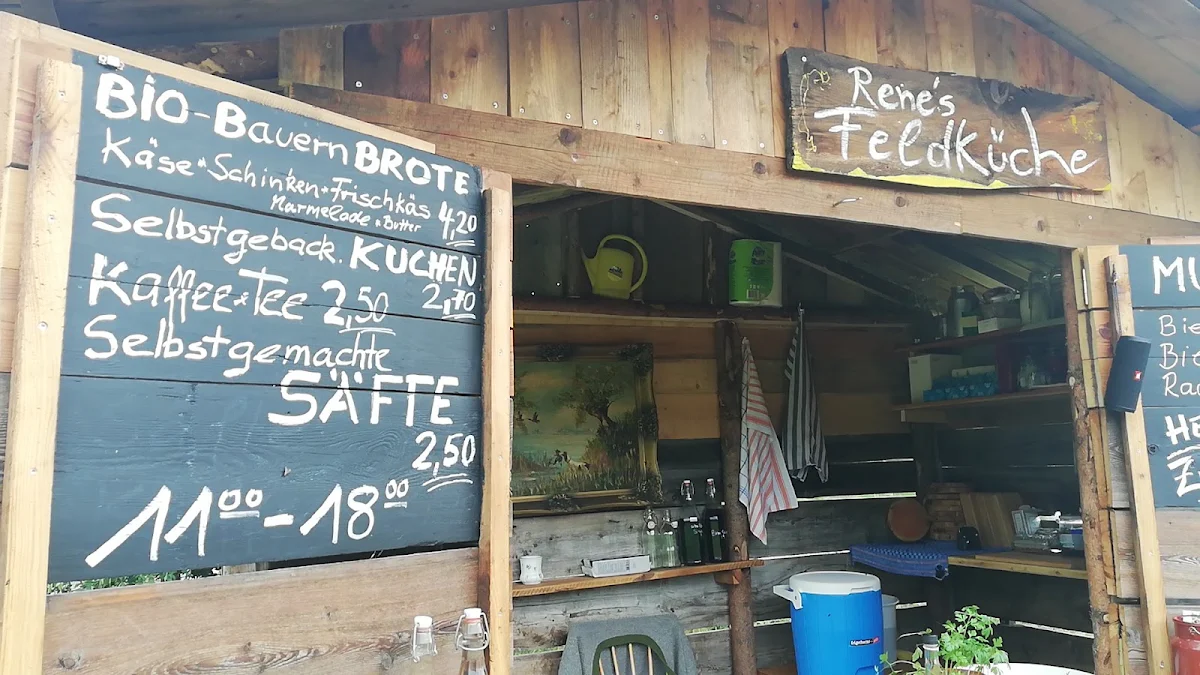 BIO-BauernBROTE
Käse * Schinken * Frischkäs
Marmelade * Butter 4,20
Selbstgeback. KUCHEN
Kaffee * Tee 2,50 2,70
Selbstgemachte
SÄFTE
2,50
11⁰⁰ - 18⁰⁰
Rene's
Feldküche